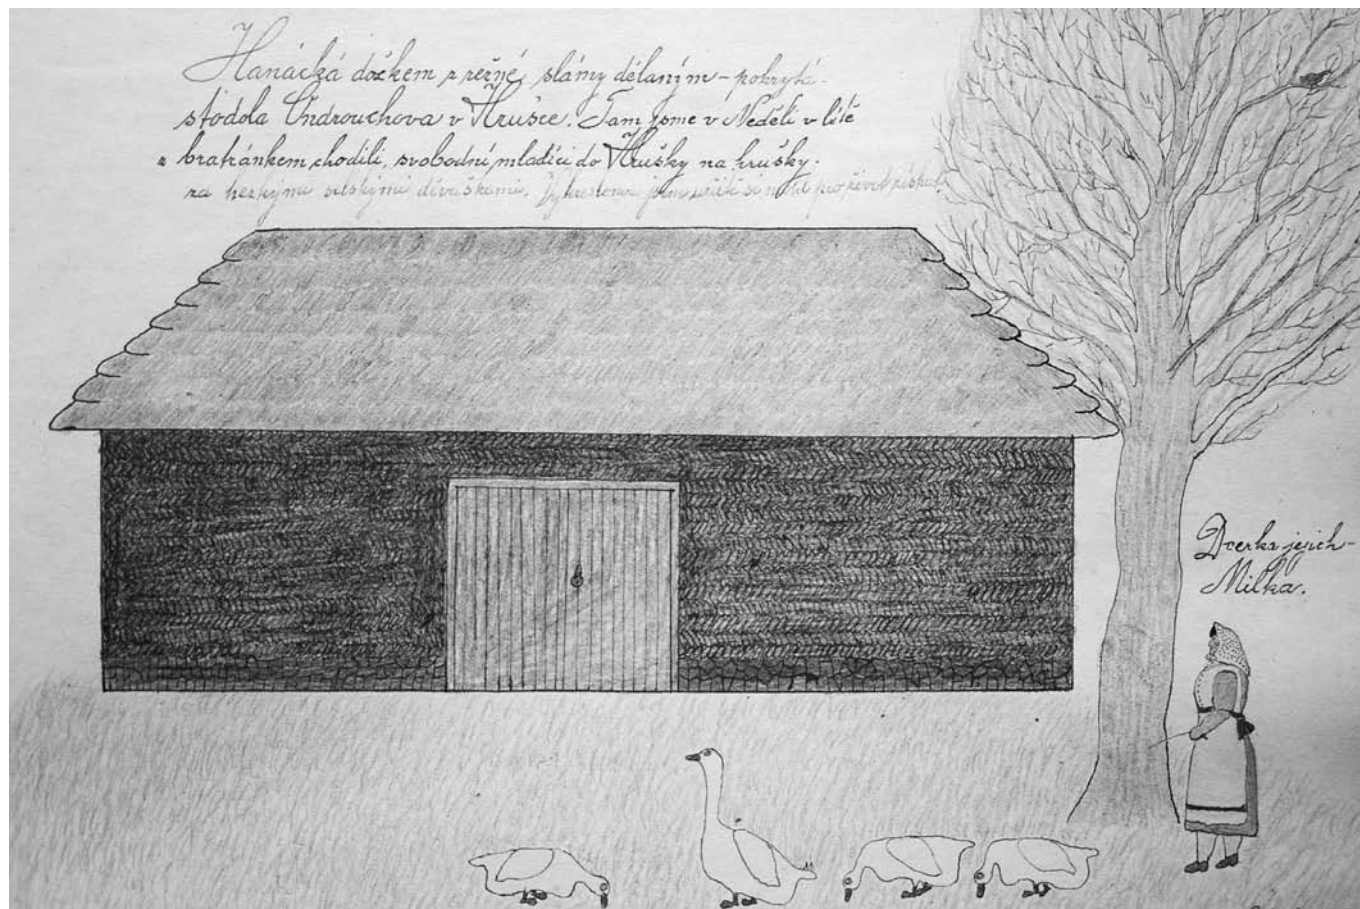 Hanácká doškem z režné slámy dělaným - pokrytá
stodola Ondrouchova v Hrušce. Tam jsme v Neděli v létě
z bratránkem chodili, svobodní mladíci do Hrušky na hrušky.
za hezkými selskými děvuškami. jsem si
Dcerka jejich -
Milka.